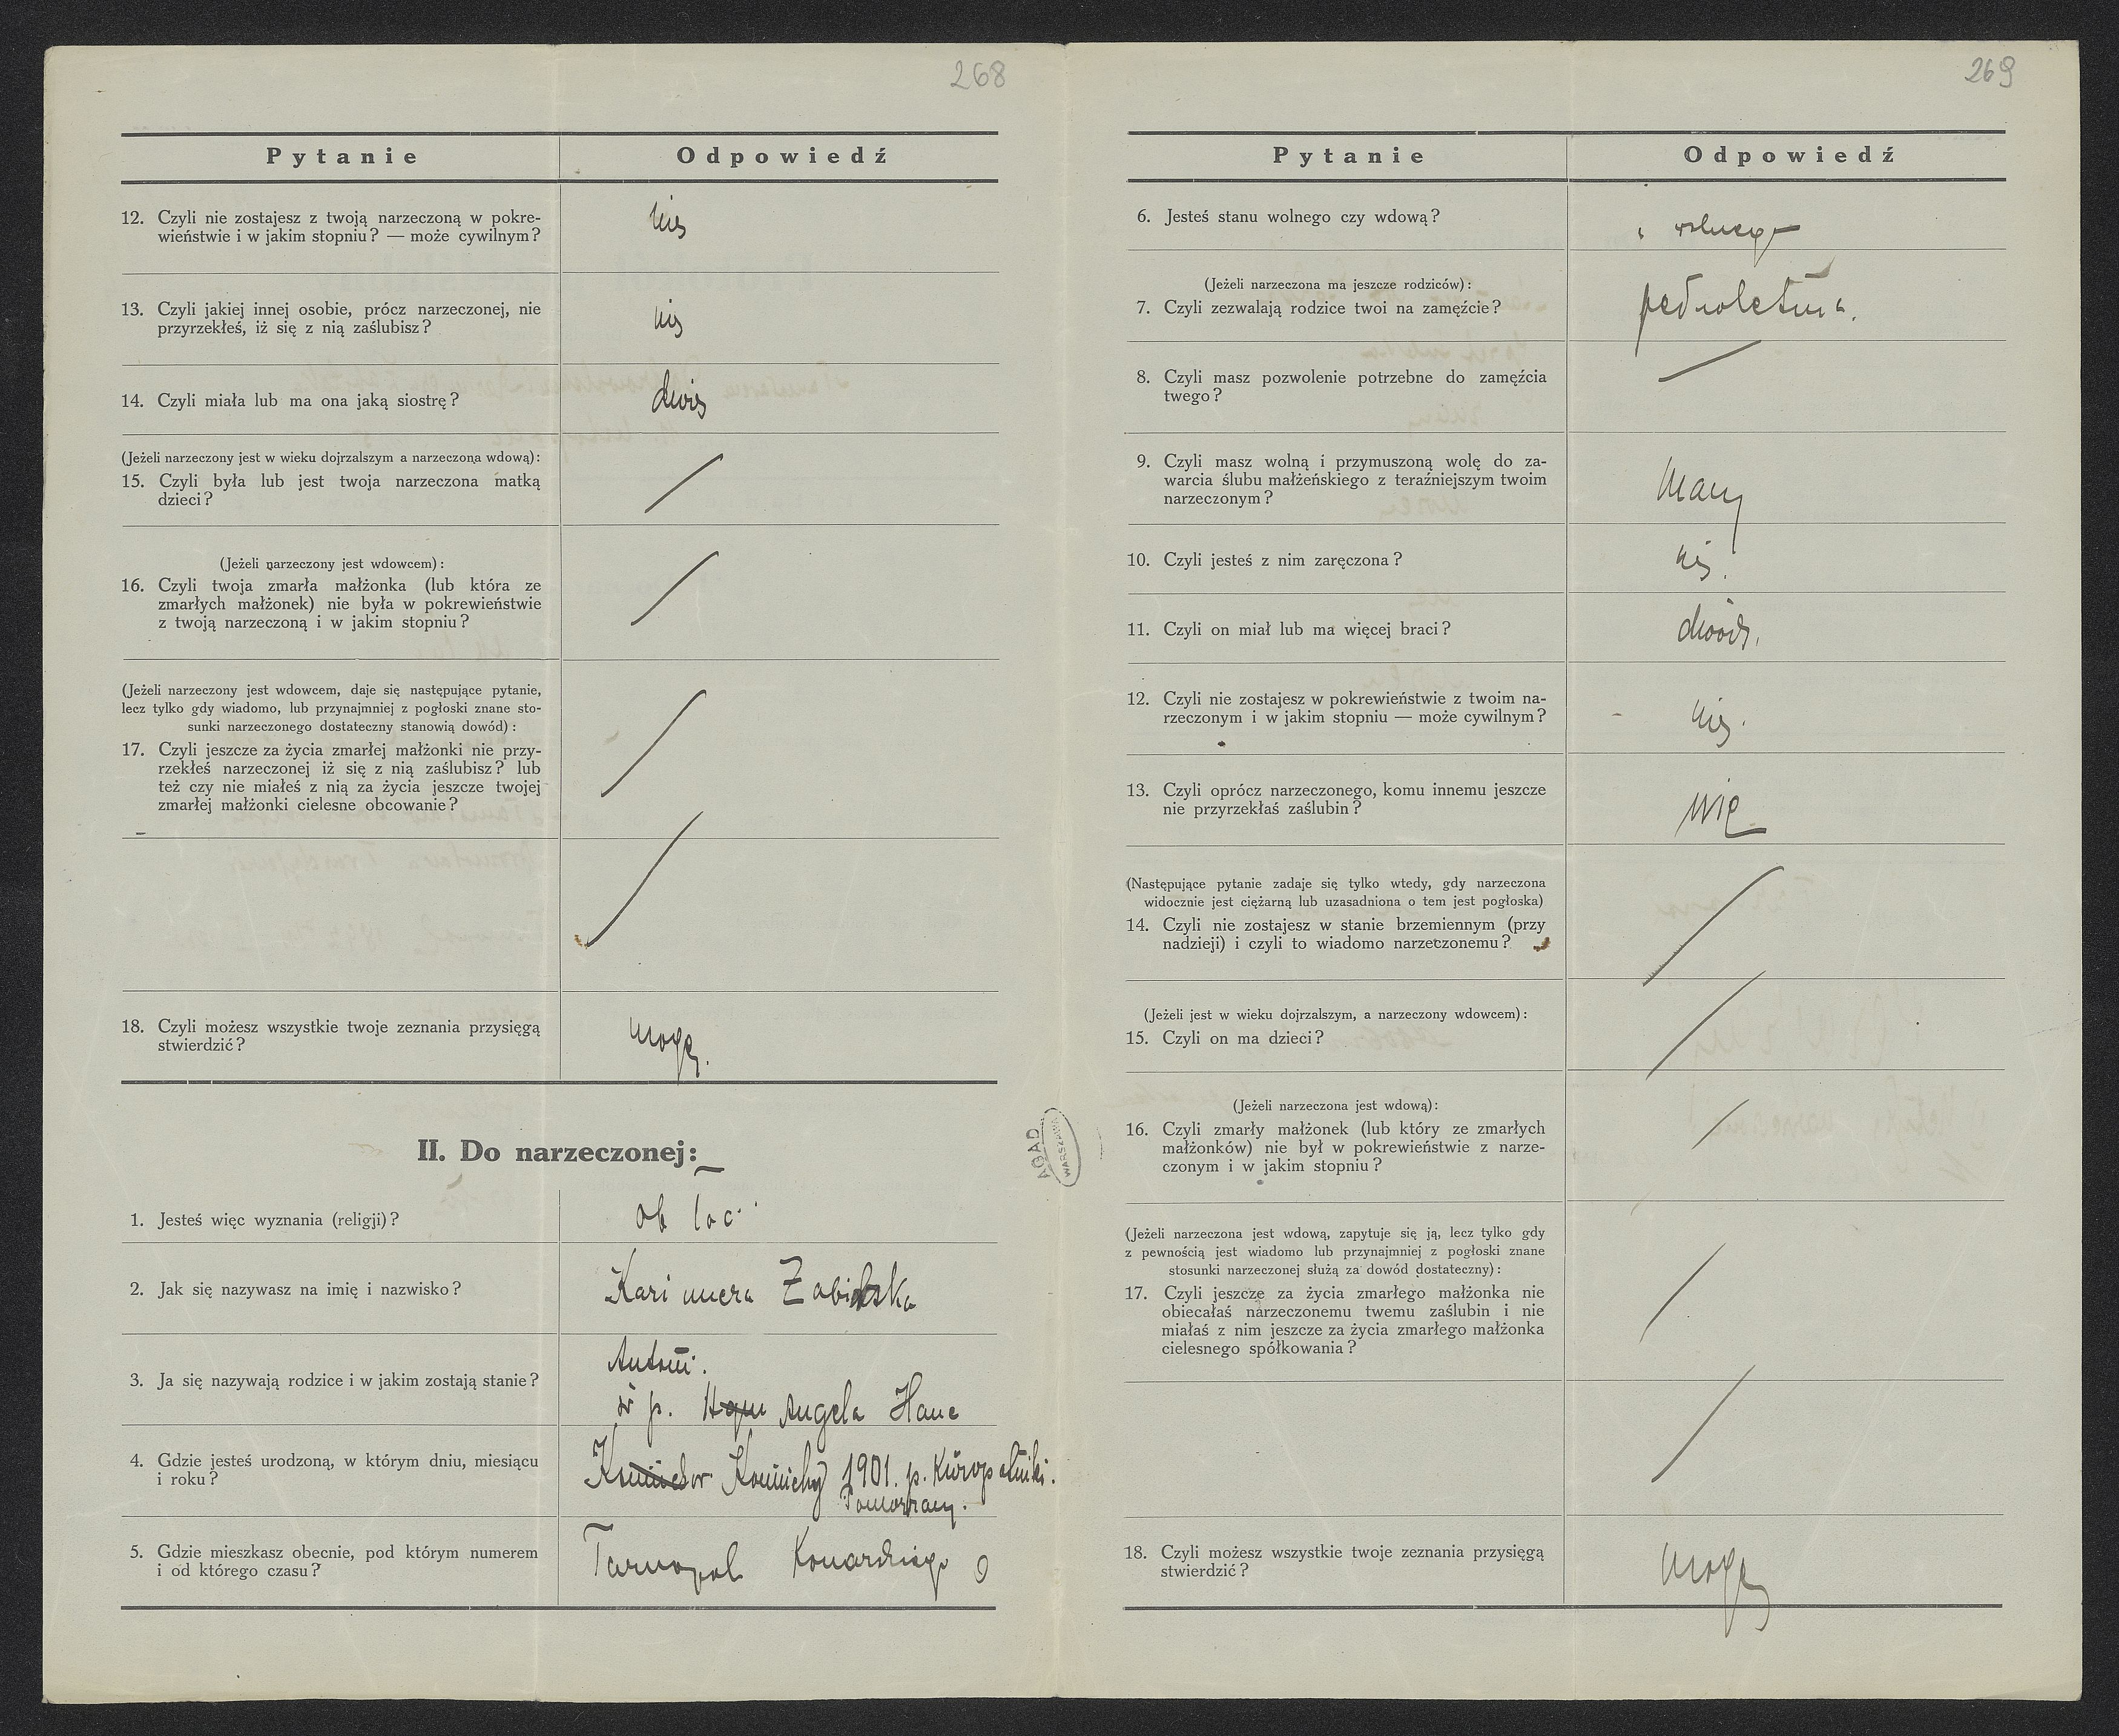 268
Pytanie Odpowiedź
12. Czyli nie zostajesz z twoją narzeczoną w pokre-
wieństwie i w jakim stopniu? — może cywilnym?
nie
13. Czyli jakiej innej osobie, prócz narzeczonej, nie
przyrzekłeś, iż się z nią zaślubisz?
nie
14. Czyli miała lub ma ona jaką siostrę?
dwie
(Jeżeli narzeczony jest w wieku dojrzalszym a narzeczona wdową):
15. Czyli była lub jest twoja narzeczona matką
dzieci?
(Jeżeli narzeczony jest wdowcem):
16. Czyli twoja zmarła małżonka (lub która ze
zmarłych małżonek) nie była w pokrewieństwie
z twoją narzeczoną i w jakim stopniu?
(Jeżeli narzeczony jest wdowcem, daje się następujące pytanie,
lecz tylko gdy wiadomo, lub przynajmniej z pogłoski znane sto-
sunki narzeczonego dostateczny stanowią dowód):
17. Czyli jeszcze za życia zmarłej małżonki nie przy-
rzekłeś narzeczonej iż się z nią zaślubisz? lub
też czy nie miałeś z nią za życia jeszcze twojej
zmarłej małżonki cielesne obcowanie?
18. Czyli możesz wszystkie twoje zeznania przysięgą
stwierdzić?
mogę.
II. Do narzeczonej:
1. Jesteś więc wyznania (religji)?
ob łac.
2. Jak się nazywasz na imię i nazwisko?
Kazimiera
3. Ja się nazywają rodzice i w jakim zostają stanie?
Antoni.
ś p. Angela
4. Gdzie jesteś urodzoną, w którym dniu, miesiącu
i roku?
1901. p.
Pomorzany.
5. Gdzie mieszkasz obecnie, pod którym numerem
i od którego czasu?
Tarnopol Konarskiego 9
AGAD
WARSZAWA
269
Pytanie Odpowiedź
6. Jesteś stanu wolnego czy wdową?
wolnego
(Jeżeli narzeczona ma jeszcze rodziców):
7. Czyli zezwalają rodzice twoi na zamężcie?
pełnoletnia.
8. Czyli masz pozwolenie potrzebne do zamężcia
twego?
9. Czyli masz wolną i przymuszoną wolę do za-
warcia ślubu małżeńskiego z teraźniejszym twoim
narzeczonym?
mam
10. Czyli jesteś z nim zaręczona?
nie.
11. Czyli on miał lub ma więcej braci?
dwóch.
12. Czyli nie zostajesz w pokrewieństwie z twoim na-
rzeczonym i w jakim stopniu — może cywilnym?
nie.
13. Czyli oprócz narzeczonego, komu innemu jeszcze
nie przyrzekłaś zaślubin?
nie
(Następujące pytanie zadaje się tylko wtedy, gdy narzeczona
widocznie jest ciężarną lub uzasadniona o tem jest pogłoska)
14. Czyli nie zostajesz w stanie brzemiennym (przy
nadzieji) i czyli to wiadomo narzeczonemu?
(Jeżeli jest w wieku dojrzalszym, a narzeczony wdowcem):
15. Czyli on ma dzieci?
(Jeżeli narzeczona jest wdową):
16. Czyli zmarły małżonek (lub który ze zmarłych
małżonków) nie był w pokrewieństwie z narze-
czonym i w jakim stopniu?
(Jeżeli narzeczona jest wdową, zapytuje się ją, lecz tylko gdy
z pewnością jest wiadomo lub przynajmniej z pogłoski znane
stosunki narzeczonej służą za dowód dostateczny):
17. Czyli jeszcze za życia zmarłego małżonka nie
obiecałaś narzeczonemu twemu zaślubin i nie
miałaś z nim jeszcze za życia zmarłego małżonka
cielesnego spółkowania?
18. Czyli możesz wszystkie twoje zeznania przysięgą
stwierdzić?
mogę